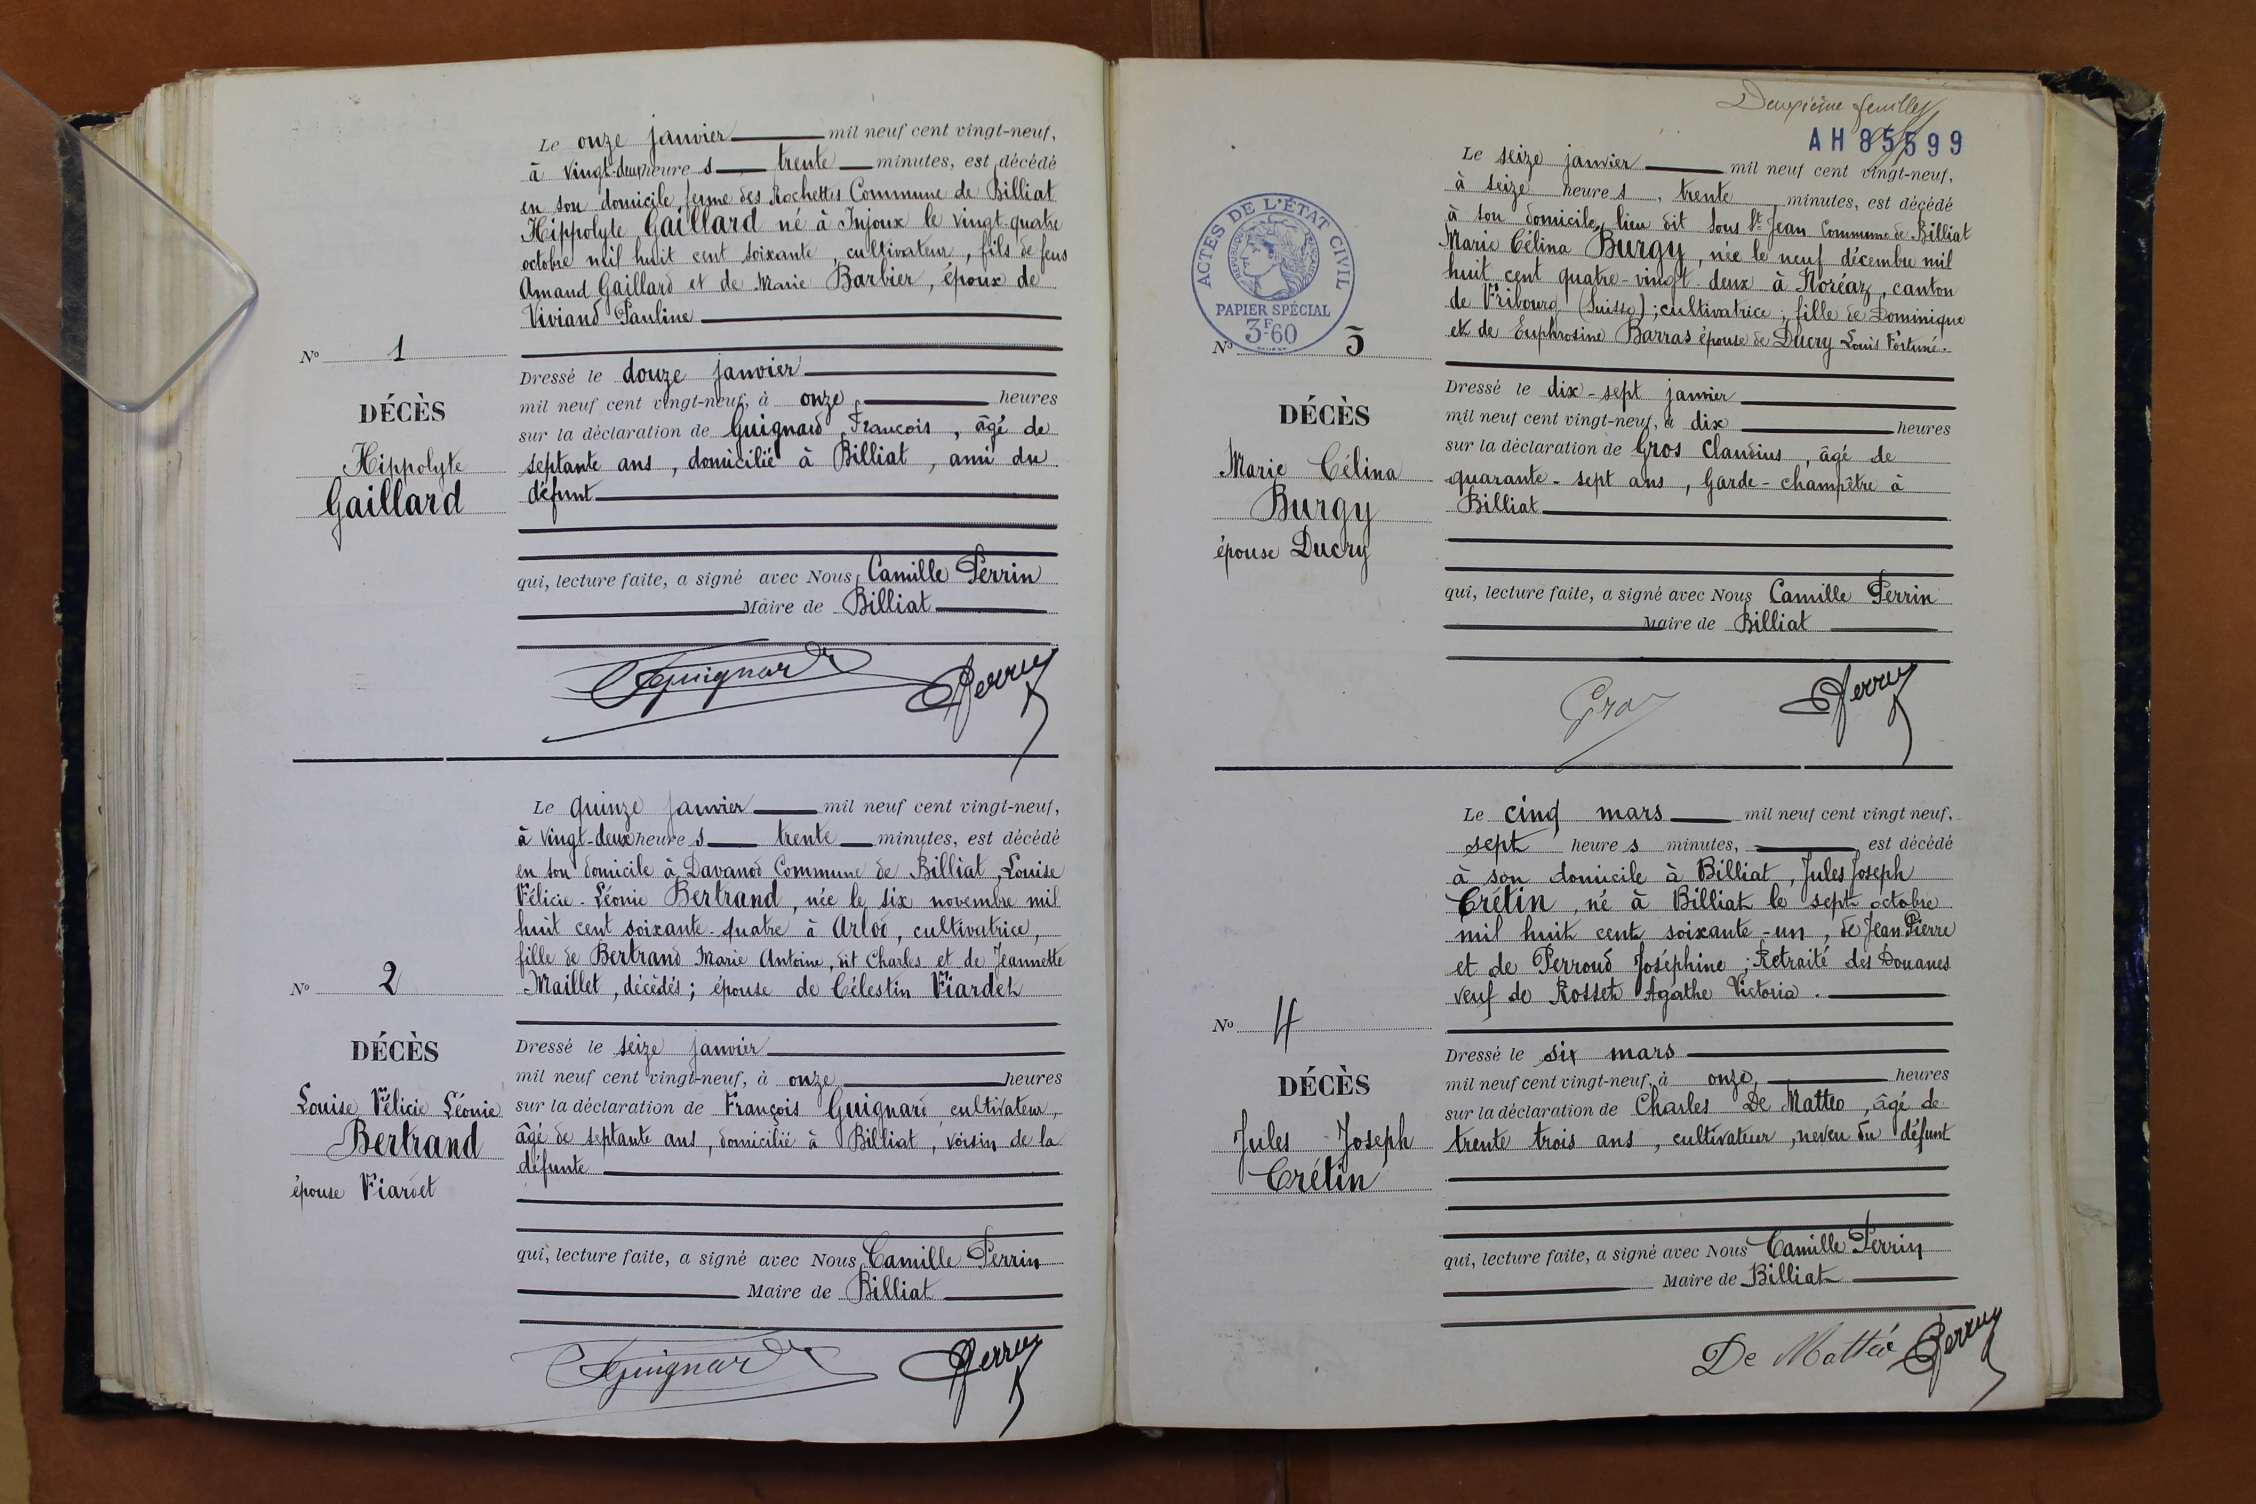 Le onze janvier mil neuf cent vingt-neuf,
à vingt-deux heure s trente minutes, est décédé
en son domicile, ferme des Rochettes Commune de Billiat
Hippolyte Gaillard né à Injoux le vingt-quatre
octobre mil huit cent soixante, cultivateur, fils de feus
Amand Gaillard et de Marie Barbier, époux de
Viviand Pauline
Nº 1
DÉCÈS
Hippolyte
Gaillard
Dressé le douze janvier
mil neuf cent vingt-neuf, à onze heures
sur la déclaration de Guignard François, âgé de
septante ans, domicilié à Billiat, ami du
défunt
qui, lecture faite, a signé avec Nous Camille Perrin
Maire de Billiat
Guignard Perrin
Le quinze janvier mil neuf cent vingt-neuf,
à vingt-deux heure s trente minutes, est décédé
en son domicile à Davanod Commune de Billiat, Louise
Félicie-Léonie Bertrand, née le six novembre mil
huit cent soixante-quatre à Arlod, cultivatrice,
fille de Bertrand Marie Antoine, dit Charles et de Jeannette
Maillet, décédés; épouse de Célestin Viardet
Nº 2
DÉCÈS
Louise Félicie Léonie
Bertrand
épouse Viardet
Dressé le seize janvier
mil neuf cent vingt-neuf, à onze heures
sur la déclaration de François Guignard cultivateur,
âgé de septante ans, domicilié à Billiat, voisin de la
défunte
qui, lecture faite, a signé avec Nous Camille Perrin
Maire de Billiat
Guignard Perrin
Deuxième feuillet
AH 85599
ACTES DE L'ÉTAT CIVIL
RÉPUBLIQUE FRANÇAISE
PAPIER SPÉCIAL
3F60
Le seize janvier mil neuf cent vingt-neuf,
à seize heure s, trente minutes, est décédé
à son domicile, lieu dit Sous St Jean Commune de Billiat
Marie Célina Burgy, née le neuf décembre mil
huit cent quatre-vingt-deux à Noréaz, canton
de Fribourg (Suisse); cultivatrice; fille de Dominique
et de Euphrosine Barras épouse de Ducry Louis Fortuné.
Nº 3
DÉCÈS
Marie Célina
Burgy
épouse Ducry
Dressé le dix-sept janvier
mil neuf cent vingt-neuf, à dix heures
sur la déclaration de Gros Claudius, âgé de
quarante-sept ans, Garde-champêtre à
Billiat
qui, lecture faite, a signé avec Nous Camille Perrin
Maire de Billiat
Gros Perrin
Le cinq mars mil neuf cent vingt neuf,
sept heure s minutes, est décédé
à son domicile à Billiat, Jules Joseph
Crétin, né à Billiat le sept octobre
mil huit cent soixante-un, de Jean Pierre
et de Perroud Joséphine; Retraité des Douanes
veuf de Rosset Agathe Victoria.
Nº 4
DÉCÈS
Jules Joseph
Crétin
Dressé le six mars
mil neuf cent vingt-neuf, à onze, heures
sur la déclaration de Charles De Matteo, âgé de
trente trois ans, cultivateur, neveu du défunt
qui, lecture faite, a signé avec Nous Camille Perrin
Maire de Billiat
De Mattéo Perrin